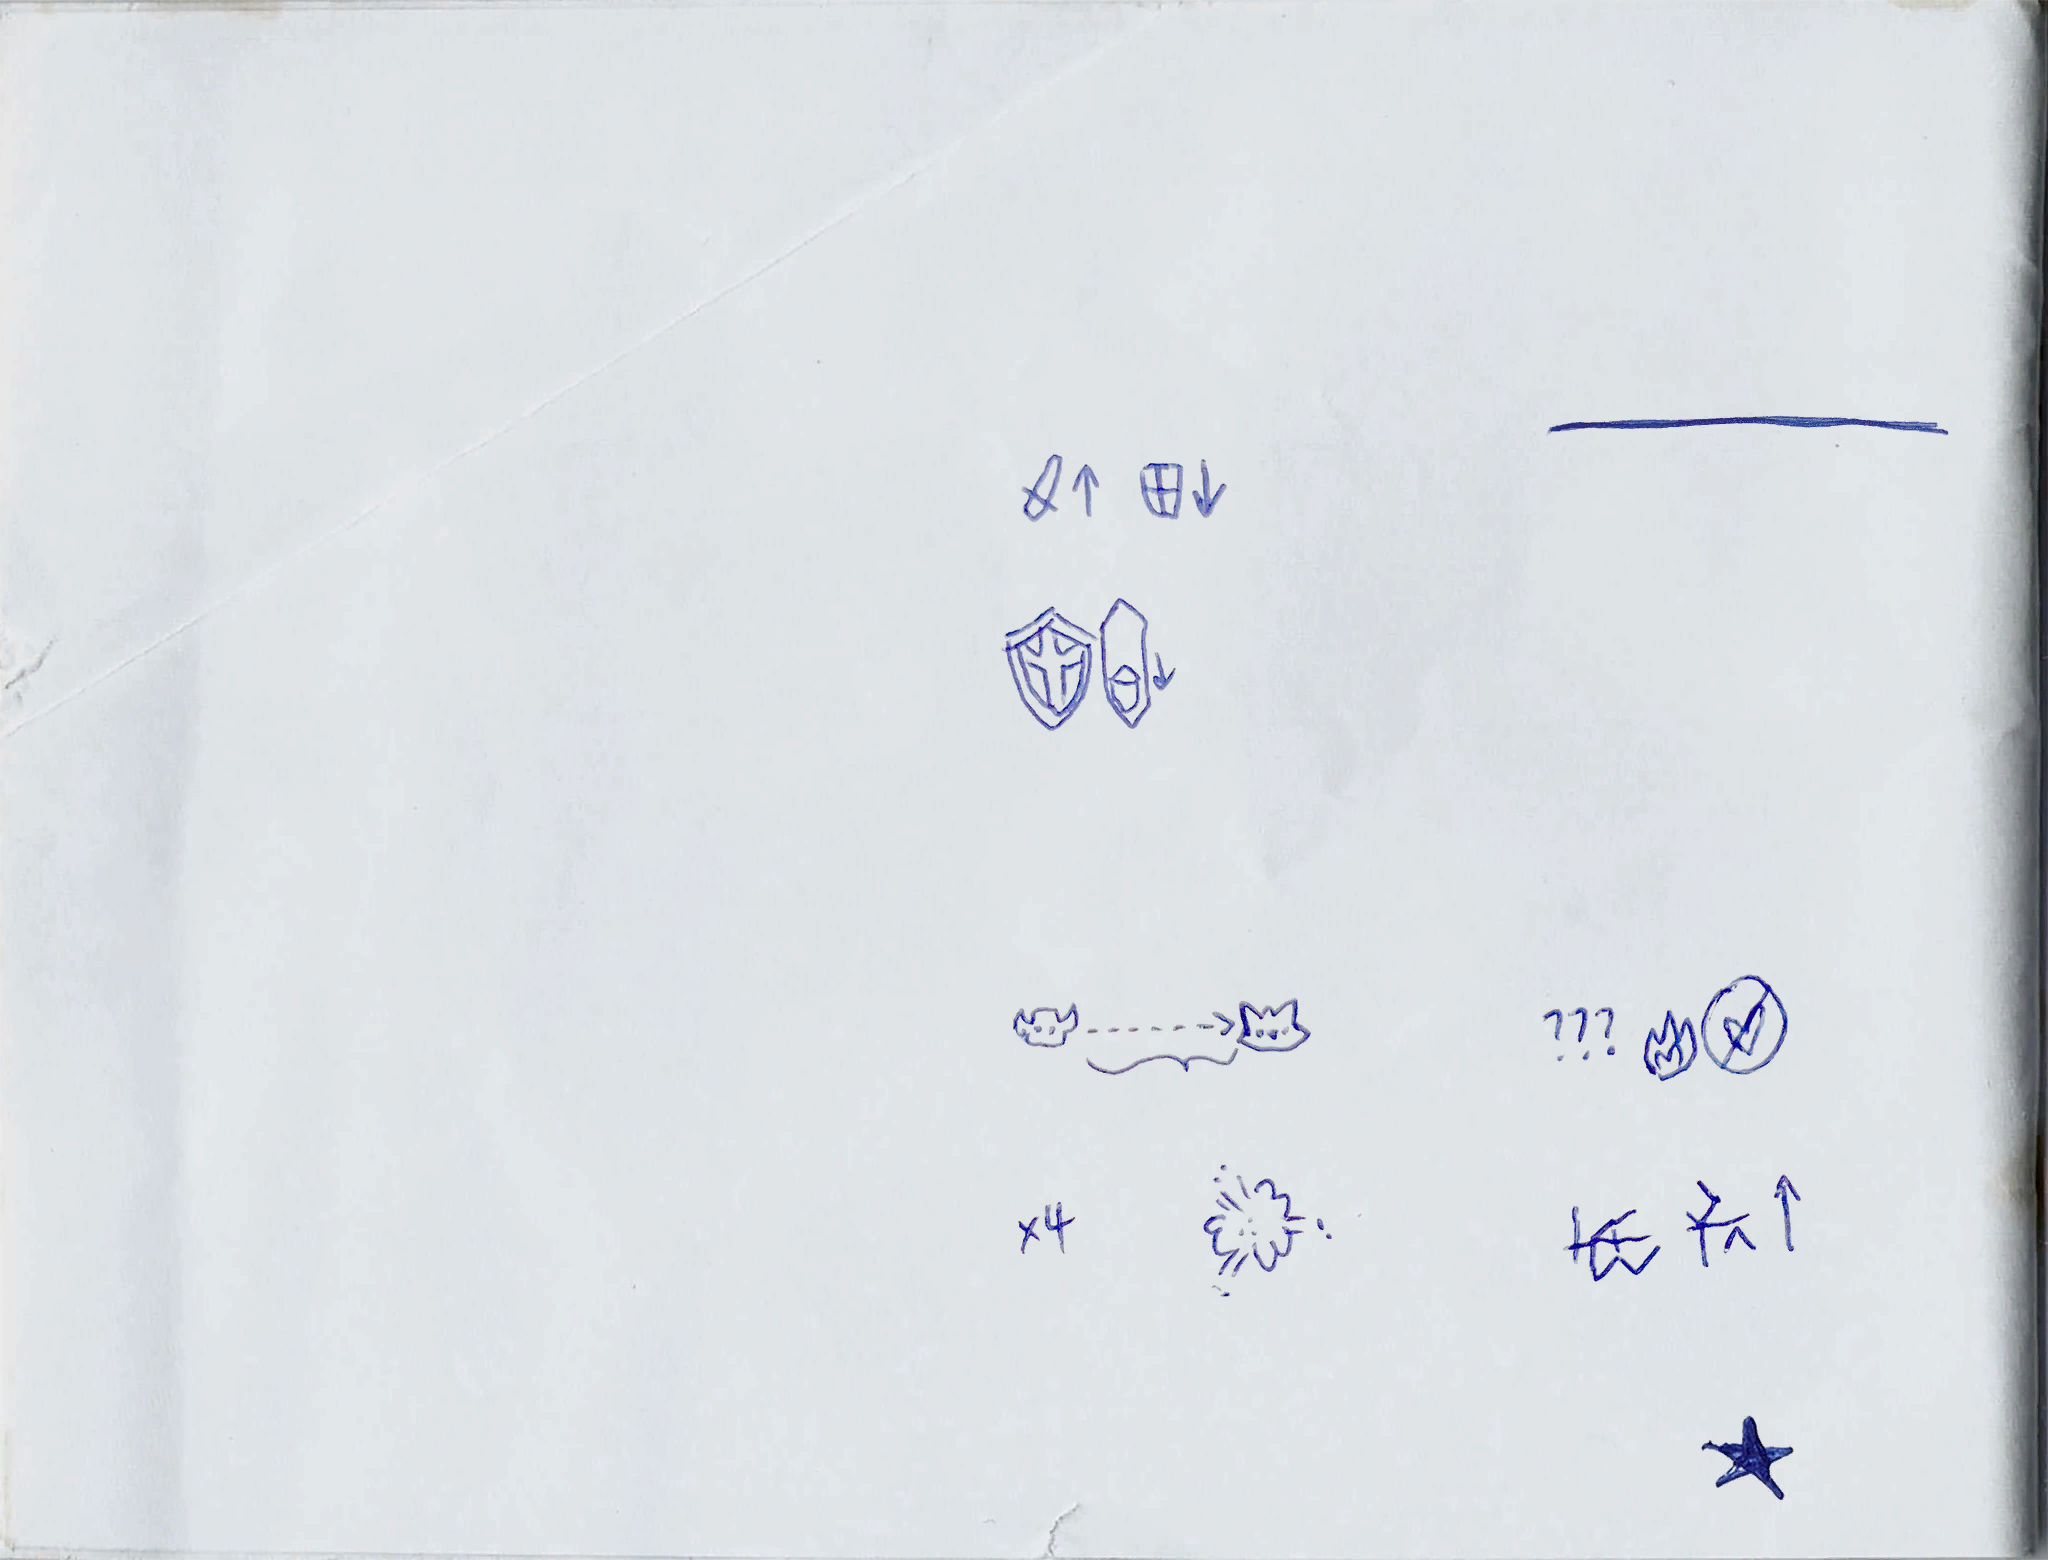 ???
x4